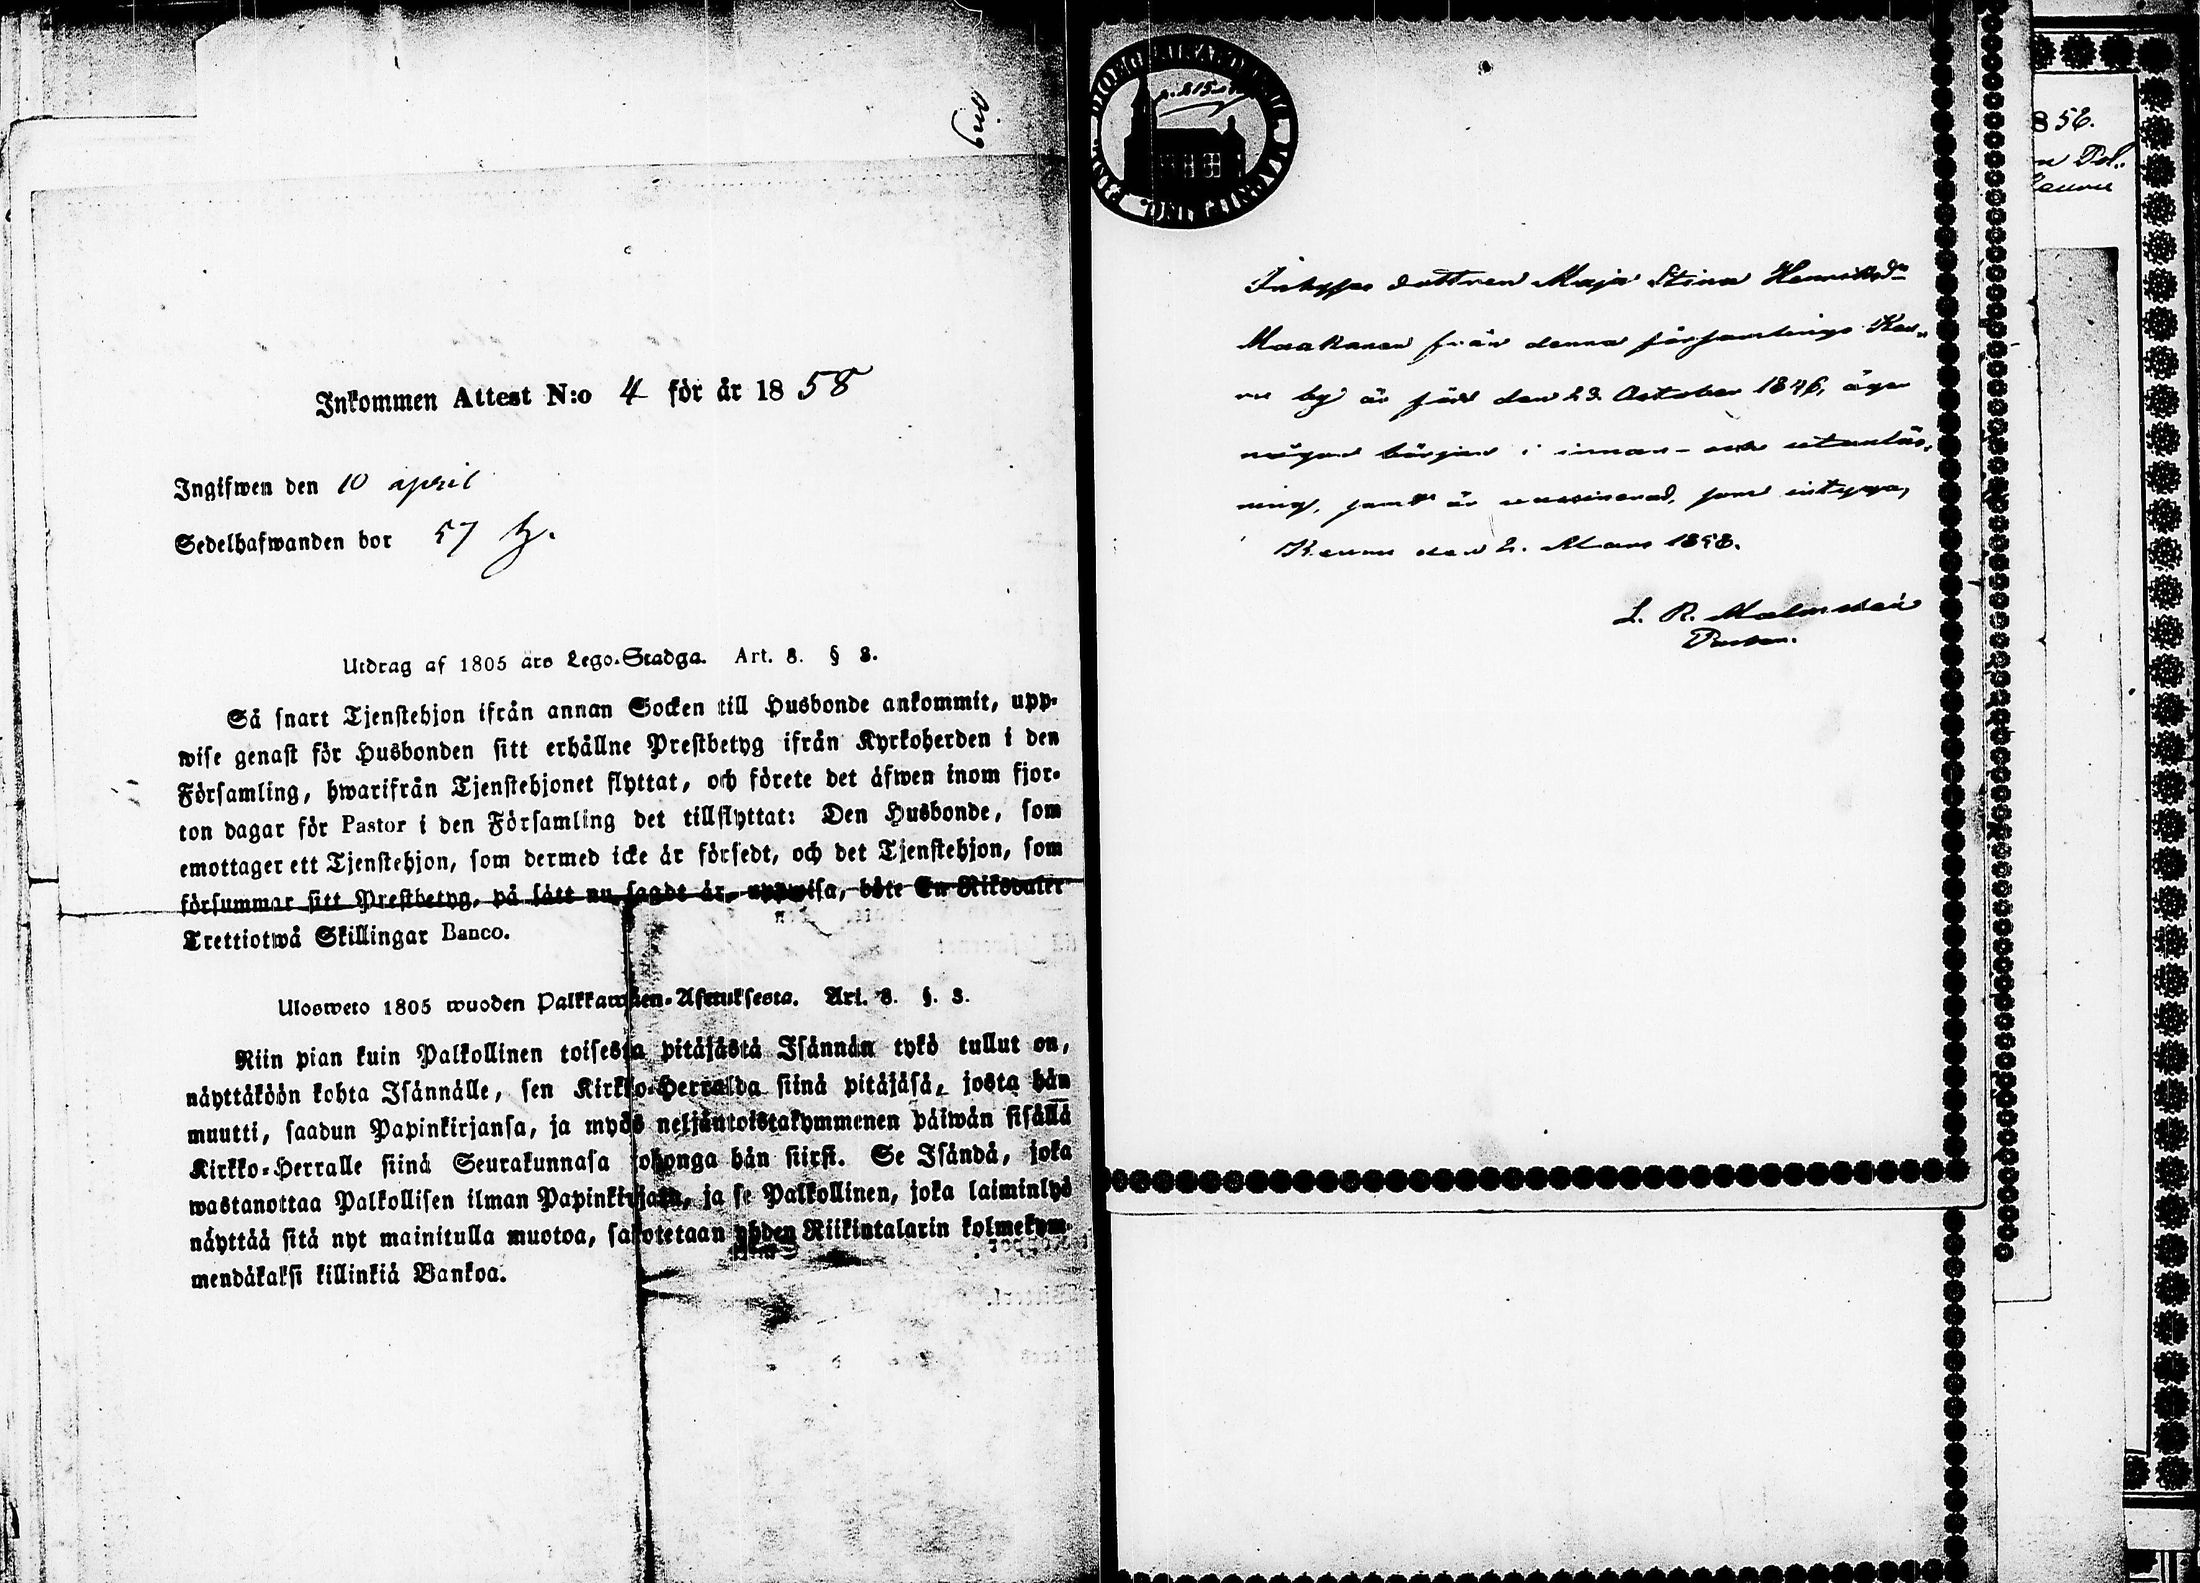 Inkommen Attest N:o 4 för år 1858
Ingifwen den 10 april
Sedelhafwanden bor 57
Utdrag af 1805 års Lego-Stadga. Art. 8. § 3.
Så snart Tjenstehjon ifrån annan Socken till Husbonde ankommit, upp-
wise genast för Husbonden sitt erhållne Prestbetyg ifrån Kyrkoherden i den
Församling, hwarifrån Tjenstehjonet flyttat, och förete det äfwen inom fjor-
ton dagar för Pastor i den Församling det tillflyttat: Den Husbonde, som
emottager ett Tjenstehjon, som dermed icke är försedt, och det Tjenstehjon, som
försummar sitt Prestbetyg, på sätt nu sagdt är, uppwisa, böte En Riksdaler
Trettiotwå Skillingar Banco.
Ulosweto 1805 wuoden Palkkawäen-Asetuksesta. Art. 8. §. 3.
Niin pian kuin Palkollinen toisesta pitäjästä Isännän tykö tullut on,
näyttäköön kohta Isännälle, sen Kirkko-Herralda siinä pitäjäsä, josta hän
muutti, saadun Papinkirjansa, ja myös neljäntoistakymmenen päiwän sisällä
Kirkko-Herralle siinä Seurakunnasa johonga hän siirsi. Se Isändä, joka
wastanottaa Palkollisen ilman Papinkirjata, ja se Palkollinen, joka laiminlyö
näyttää sitä nyt mainitulla muotoa, sakotetaan yhden Riikintalarin kolmekym-
mendäkaksi killinkiä Bankoa.
Inhyses dottren Maja Stina Henriksdr
Maakanen från denna församlings Kau-
nu by är född den 23 October 1846, äger
någon början i innan- och utanläs-
ning, samt är vaccinerad, som intygas,
den 2. Mars 1858.
L. R. Malmstén
Pastor.
856.